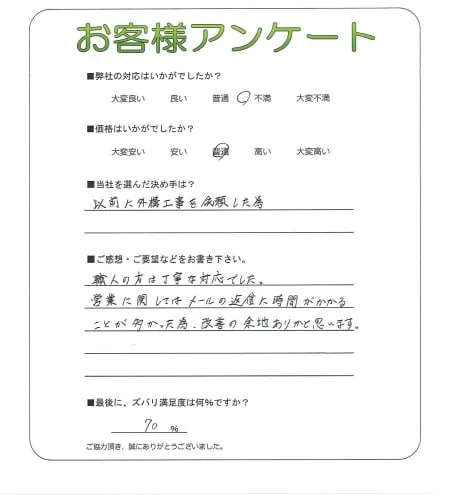 お客様アンケート
■弊社の対応はいかがでしたか?
大変良い 良い 普通 不満 大変不満
■価格はいかがでしたか?
大変安い 安い 普通 高い 大変高い
■当社を選んだ決め手は?
以前に外構工事を依頼した為
■ご感想・ご要望などをお書き下さい。
職人の方は丁寧な対応でした。
営業に関してはメールの返信に時間がかかる
ことが多かった為、改善の余地ありかと思います。
■最後に、ズバリ満足度は何%ですか?
70 %
ご協力頂き、誠にありがとうございました。